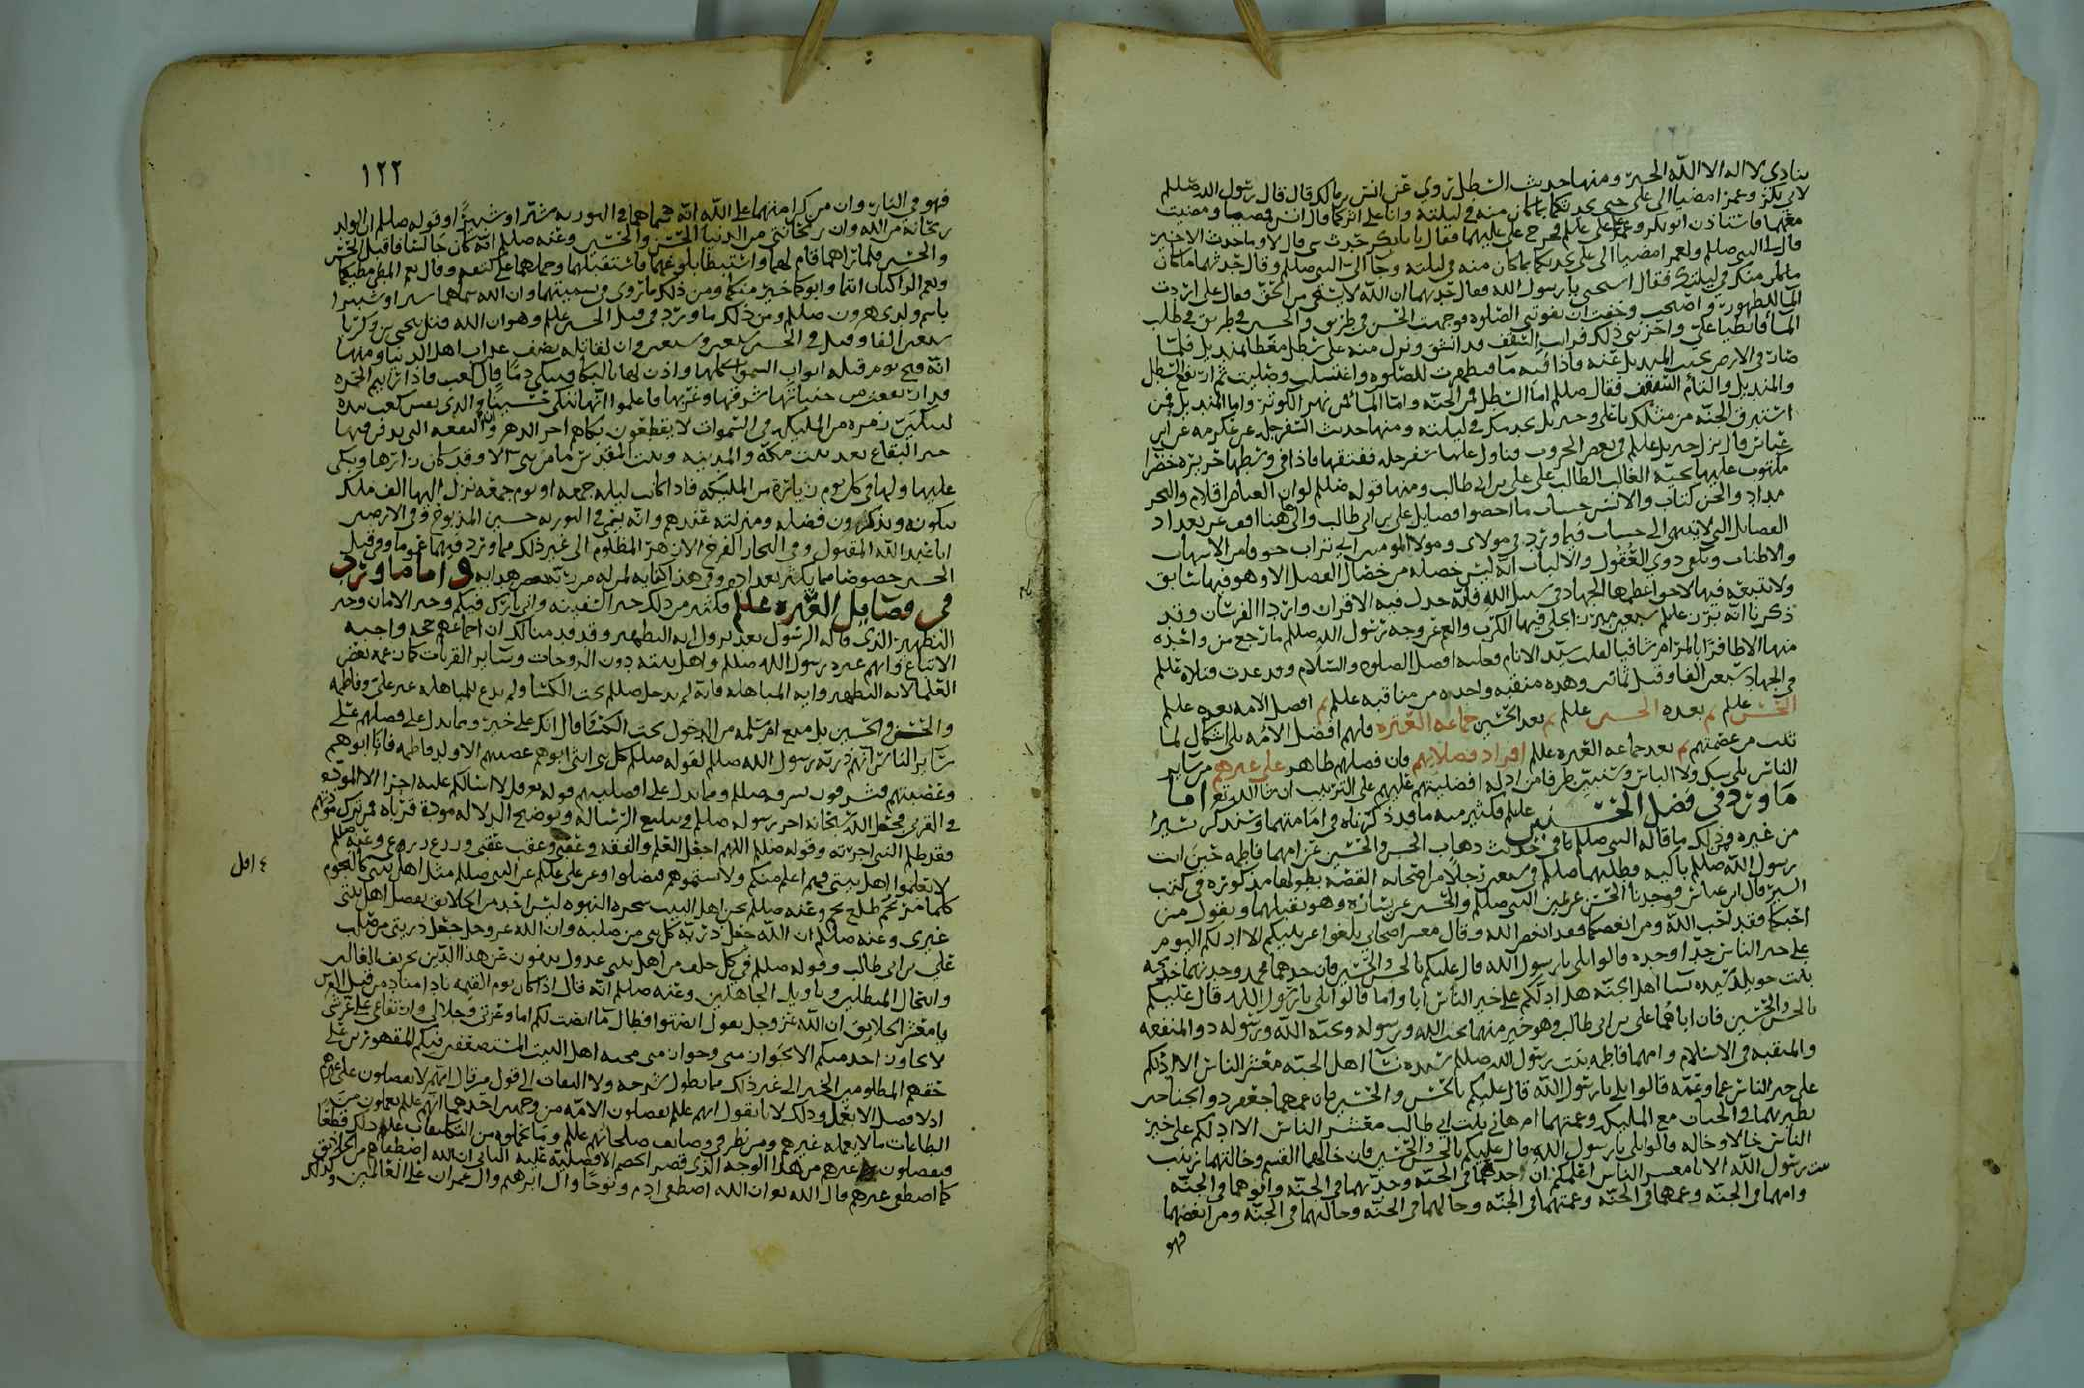 ينادي لا اله الا الله الخبر ومنها حديث السطل روي عن انس بن مالك قال قال رسول الله صللم
لابي بكر وعمر امضيا الى علي حتى يحدثكما بما كان منه في ليلته وانا على اثركما قال انس فمضيا ومضيت
معهما فاستاذن ابو بكر وعمر على علي علم فخرج علي اليهما فقال يا ابا بكر حدث شي قال لا وما حدث الا خير
قال لي النبي صللم ولعمر امضيا الى علي يحدثكما بما كان منه في ليلته وجا النبي صللم وقال حدثهما ما كان
منك في ليلتك فقال استحي يا رسول الله فقال حدثهما ان الله لا يستحي من الحق فقال علي اردت
الما للطهور واصبحت وخفت ان تفوتني الصلوه فوجهت الحسن في طريق والحسين في طريق في طلب
الما فابطيا علي فاحزنني ذلك فرايت السقف قد انشق ونزل منه علي سطل مغطا بمنديل فلما
صار في الارض نحيت المنديل عنه واذا فيه ما فتطهرت للصلوه واغتسلت وصليت ثم ارتفع السطل
والمنديل والتام السقف فقال صللم اما السطل فمن الجنه واما الما فمن نهر الكوثر واما المنديل فمن
استبرق الجنه من مثلك يا علي وجبريل يخدمك في ليلته ومنها حديث السفرجله عن عكرمه عن ابن
عباس قال نزل جبريل علم في بعض الحروب فناول عليا سفرجله ففتقها فاذا في وسطها حريره خضرا
مكتوب عليها تحيه الغالب الطالب على علي بن ابي طالب ومنها قوله صللم لو ان الغياض اقلام والبحر
مداد والجن كتاب والانس حساب ما احصوا فضايل علي بن ابي طالب والى هنا اقف عن تعداد
الفضايل التي لا تنتهي الى حساب فيما ورد في مولاي ومولا المومنين ابي تراب خوفا من الاسهاب
والاطناب وليعلم ذوي العقول والالباب انه ليس خصله من خصال الفضل الا وهو فيها سابق
ولا تتبعه فيها لاحق اعظمها الجهاد في سبيل الله فانه جدل فيه الاقران واردا الفرسان وقد
ذكرنا انه
منها الاظافرا
في الجهاد سبعين الفا وقيل ثمانين وهذه منقبه واحده من مناقبه علم ثم افضل الامه بعده علم
الحسن علم ثم بعده الحسين علم ثم بعد الحسين جماعه العتره فانهم افضل الامه بلا اشكال لما
ثبت من عصمتهم ثم بعد جماعه العتره علم افراد فضلايهم فان فضلهم ظاهر على غيرهم من ساير
الناس بلا شك ولا التباس وسنبين طرفا من ادله افضليتهم عليهم على الترتيب ان شا الله تع اما
ما ورد في فضل الحسنين علم فكثير منه ما قد ذكرناه في امامتهما وسنذكر يسيرا
من غيره وذلك ما قاله النبي صللم في حديث ذهاب الحسن والحسين عن امهما فاطمه حين اتت
رسول الله صللم باكيه وطلبهما صللم في سبعين رجلا من اصحابه القصه بطولها مذكوره في كتب
السير قال ابن عباس فوجدنا الحسن عن يمين النبي صللم والحسين عن يساره وهو يقبلهما ويقول من
احبكما فقد احب الله ومن ابغضكما فقد ابغض الله وقال معشر اصحابي بلغوا عن نبيكم الا ادلكم اليوم
على خير الناس جدا وجده قالوا بلى يا رسول الله قال عليكم بالحسن والحسين فان جدهما محمد وجدتهما خديجه
بنت خويلد سيده نسا اهل الجنه هل ادلكم على خير الناس ابا واما قالوا بلى يا رسول الله قال عليكم
بالحسن والحسين فان اباهما علي بن ابي طالب وهو خير منهما يحب الله ورسوله ويحبه الله ورسوله ذو المنفعه
والمنقبه في الاسلام وامهما فاطمه بنت رسول الله صللم سيده نسا اهل الجنه معشر الناس الا ادلكم
على خير الناس عما وعمه قالوا بلى يا رسول الله قال عليكم بالحسن والحسين فان عمهما جعفر ذو الجناحين
يطير بهما في الجنان مع المليكه وعمتهما ام هاني بنت ابي طالب معشر الناس الا ادلكم على خير
الناس خالا وخاله قالوا بلى يا رسول الله قال عليكم بالحسن والحسين فان خالهما القسم وخالتهما زينب
بنت رسول الله الا يا معشر الناس اعلمكم ان جدهما في الجنه وجدتهما في الجنه وابوهما في الجنه
وامهما في الجنه وعمهما في الجنه وعمتهما في الجنه وخالهما في الجنه وخالتهما في الجنه ومن ابغضهما
فهو
١٢٢
فهو في النار وان من كرامتهما على الله انه سماهما في التوريه شبرا وشبيرا وقوله صللم ان الولد
ريحانه من الله وان ريحانتي من الدنيا الحسن والحسين وعنه صللم انه كان جالسا فاقبل الحسن
والحسين فلما راهما قام لهما واستبطا بلوغهما فاستقبلهما وحملهما على كتفيه وقال نعم المطي مطيكما
ونعم الراكبان انتما وابوكما خير منكما ومن ذلك ما روي في تسميتهما وان الله سماهما شبرا وشبيرا
باسم ولدي هرون صللم ومن ذلك ما ورد في قتل الحسين علم وهو ان الله قتل بيحيى بن زكريا
سبعين الفا وقتل في الحسين سبعين وسبعين وان لقاتله نصف عذاب اهل الدنيا ومنها
انه فتح يوم قتله ابواب السموات كلها واذن لها بالبكا فتبكي دما قال كعب فاذا رايتم الحمره
قد ارتفعت من جنباتها شرقها وغربها فاعلموا انها تبكي حسينا والذي نفس كعب بيده
لتبكين زمره من المليكه في السموات لا يقطعون بكاهم اخر الدهر وان البقعه التي يدفن فيها
خير البقاع بعد بيت مكه والمدينه وبيت المقدس ما من نبي الا وقد كان زارها وبكى
عليها ولها في كل يوم زياره من المليكه فاذا كانت ليله جمعه او يوم جمعه نزل اليها الف ملك
يبكونه ويذكرون فضله ومنزلته عندهم وانه يسمى في التوريه حسين المذبوح وفي الارضين
ابا عبد الله المقتول وفي البحار الفرخ الازهر المظلوم الى غير ذلك مما ورد فيهما عموما وفي قتل
الحسين خصوصا مما يكثر تعداده وفي هذا كفايه لمن له مزيه هدايه واما ما ورد
في فضايل العتره علم فكثير من ذلك خبر السفينه واني تارك فيكم وخبر الامان وخبر
التطهير الذي قاله الرسول بعد نزول ايه التطهير وقد قدمنا لك ان اجماعهم حجه واجبه
الاتباع وانهم عتره رسول الله صللم واهل بيته دون الزوجات وساير القربات كما زعمه بعض
العلما لايه التطهير وايه المباهله فانه لم يدخل صللم تحت الكسا ولم يدع للمباهله غير علي وفاطمه
والحسن والحسين بل منع ام سلمه من الدخول تحت الكسا قال انك على خير ومما يدل على فضلهم على
ساير الناس انهم ذريه رسول الله صللم لقوله صللم كل بني انثى ابوهم عصبتهم الا ولد فاطمه فانا ابوهم
وعصبتهم فشرفوا بشرفه صللم ومما يدل على افضليتهم قوله تع قل لا اسالكم عليه اجرا الا الموده
في القربى فجعل الله سبحانه اجر رسوله صللم في تبليغ الرساله وتوضيح الدلاله موده قرباه فمن ترك مودتهم
فقد ظلم النبي اجرته وقوله صللم اللهم اجعل العلم والفقه في عقبي وعقب عقبي وزرعي وزرع زرعي وعنه صللم
لا تعلموا اهل بيتي فهم اعلم منكم ولا تشتموهم فتضلوا وعن علي علم عن النبي صللم مثل اهل بيتي كالنجوم
كلما مر نجم طلع نجم وعنه صللم نحن اهل البيت شجره النبوه ليس احد من الخلايق يفضل اهل بيتي
غيري وعنه صللم ان الله جعل ذريه كل نبي من صلبه وان الله عز وجل جعل ذريتي من صلب
علي بن ابي طالب وقوله صللم في كل خلف من اهل بيتي عدول ينفون عن هذا الدين تحريف الغالين
وانتحال المبطلين وتاويل الجاهلين وعنه صللم انه قال اذا كان يوم القيمه نادا مناد من قبل العرش
يا معشر الخلايق ان الله عز وجل يقول انصتوا فطال ما انصت لكم اما وعزتي وجلالي وارتفاعي على عرشي
لا يجاوز احد منكم الا بجواز مني وجواز مني محبه اهل البيت المستضعفين فيكم المقهورين على
حقهم المظلومين الخبر الى غير ذلك مما يطول شرحه ولا التفات الى قول من قال انهم لا يفضلون على غيرهم
اذ لا فضل الا بعمل وذلك لانا نقول انهم علم يفضلون الامه من وجهين احدهما انهم علم يعملون من
الطاعات ما لا يعمله غيرهم ومن نظر في وصايف صلحايهم علم وما تحملوه من التكليفات علم ذلك قطعا
فيفضلون غيرهم من هذا الوجه الذي قصر الخصم الافضليه عليه الثاني ان الله اصطفاهم من الخلايق
كما اصطفى غيرهم قال الله تع ان الله اصطفى ادم ونوحا وال ابرهيم وال عمران على العالمين وكذلك